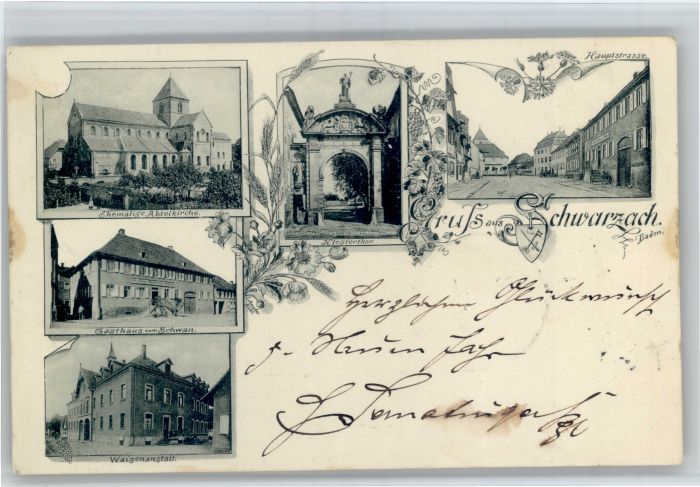 Ehemalige Abteikirche.
Klosterthor.
Hauptstrasse
Gruss aus Schwarzach.
Baden.
Gasthaus zum Schwan.
Waisenanstalt.
Herzlichen Glückwunsch
z. Neuen Jahr